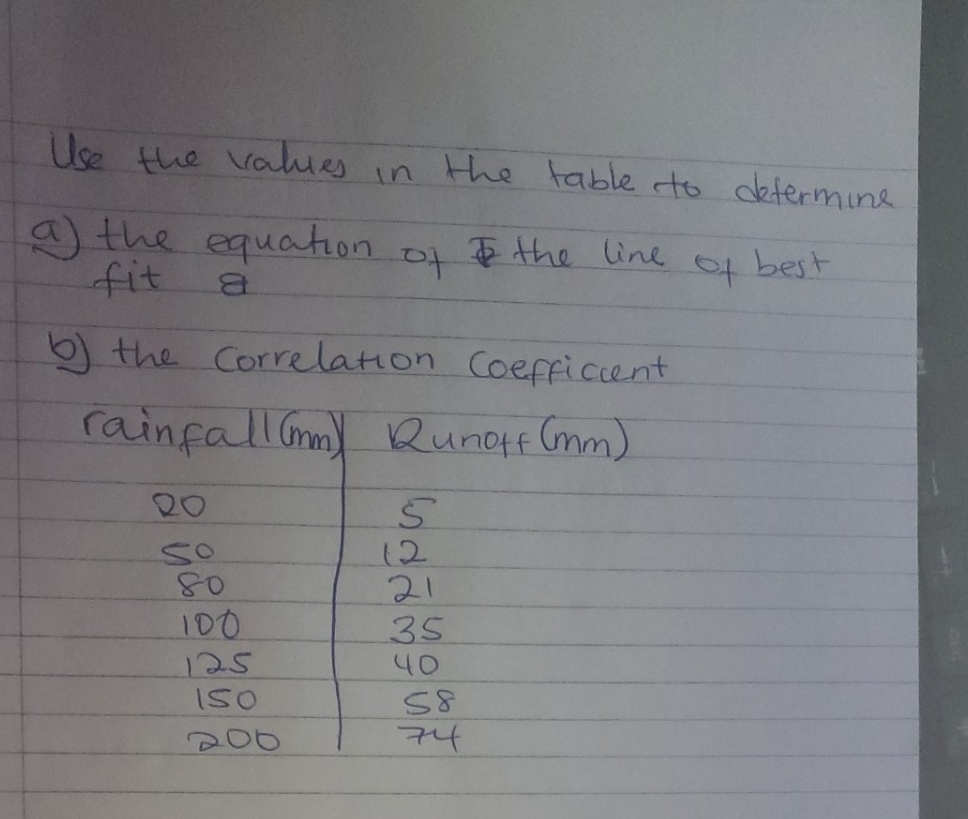 Use the values in the table to determine
a) the equation of the line of best
fit
b) the correlation coefficient
rainfall (mm) Runoff (mm)
20 5
50 12
80 21
100 35
125 40
150 58
200 74